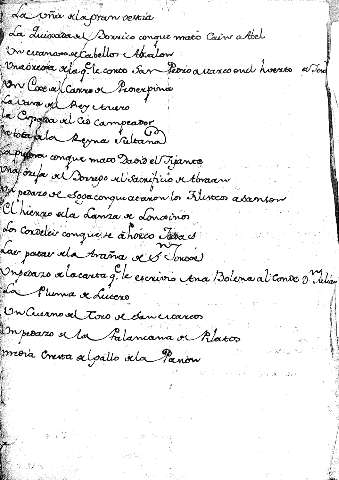 La uña de la gran vestia
La Quixada de Borrico con que mató Cain a Abel
Un de Cabellos de Absalon
Una oreja de la q.e le cortó San Pedro a Marco en el huerto
Un Coxe del Carro de Proserpina
La vara del Rey Asuero
La Espada del Cid Campeador
La bota de la Reyna Sultana
La piedra con que mató David el Gigante
Una del Borrego del Sacrificio de Abraan
Un pedazo de Soga con que ataron los Filisteos a Sanson
El hierro de la Lanza de Longinos
Los Cordeles con que se ahorcó Judas
Las patas de la Araña de S.n Jorge
Un pedazo de la carta q.e le escrivio Ana Bolena al Conde D.n Julian
La Pluma de Lutero
Un Cuerno del Toro de San Marcos
Un pedazo de la Palancana de Pilatos
media Cresta del gallo de la Pasion